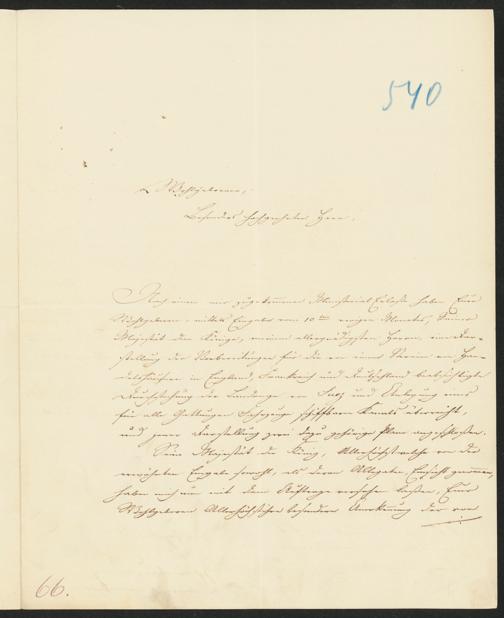 540
Wohlgeborner,
Besonders hochgeehrter Herr.
Nach einem mir zugekommenen Ministerial Erlasse haben Euer
Wohlgeboren mittels Eingabe vom 10ten vorigen Monats, Seiner
Majestät dem Könige, meinem allergnädigsten Herrn, eine Dar-
stellung der Vorbereitungen für die von einem Verein von Han-
delshäusern in England, Frankreich und Deutschland beabsichtigte
Durchstechung der Landenge von Suez und Anlegung eines
für alle Gattungen Fahrzeuge schiffbaren Canals überreicht,
und jener Darstellung zwei dazu gehörige Pläne angeschlossen.
Seine Majestät der König, Allerhöchstwelche von der
erwähnten Eingabe sowohl, als deren Allegaten, Einsicht genommen,
haben mich nun mit dem Auftrage versehen lassen, Euer
Wohlgeboren Allerhöchstihre besondere Anerkennung der von
66.